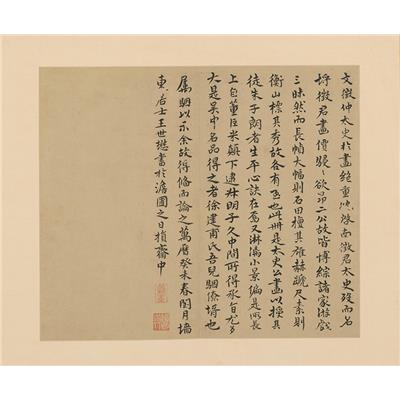 文徵仲太史於畫絕重沈啟南徵君太史歿而名
埒徵君畫價駸〻欲昂二公故皆博綜諸家游戲
三昧然而長幀大幅則石田擅其雄赫蹏尺素則
衡山標其秀故各有至也此冊是太史公畫以授其
徒朱子朗者生平心訣在焉又淋漓小景偏是所長
上自董巨米顛下逮叔明子久中間所得承旨尤多
大是吳中名品得之者徐建甫氏吾兒駰僚壻也
属駰以示余故得備而論之萬曆癸未春閏月墻
東居士王世懋書於澹圃之日損齋中